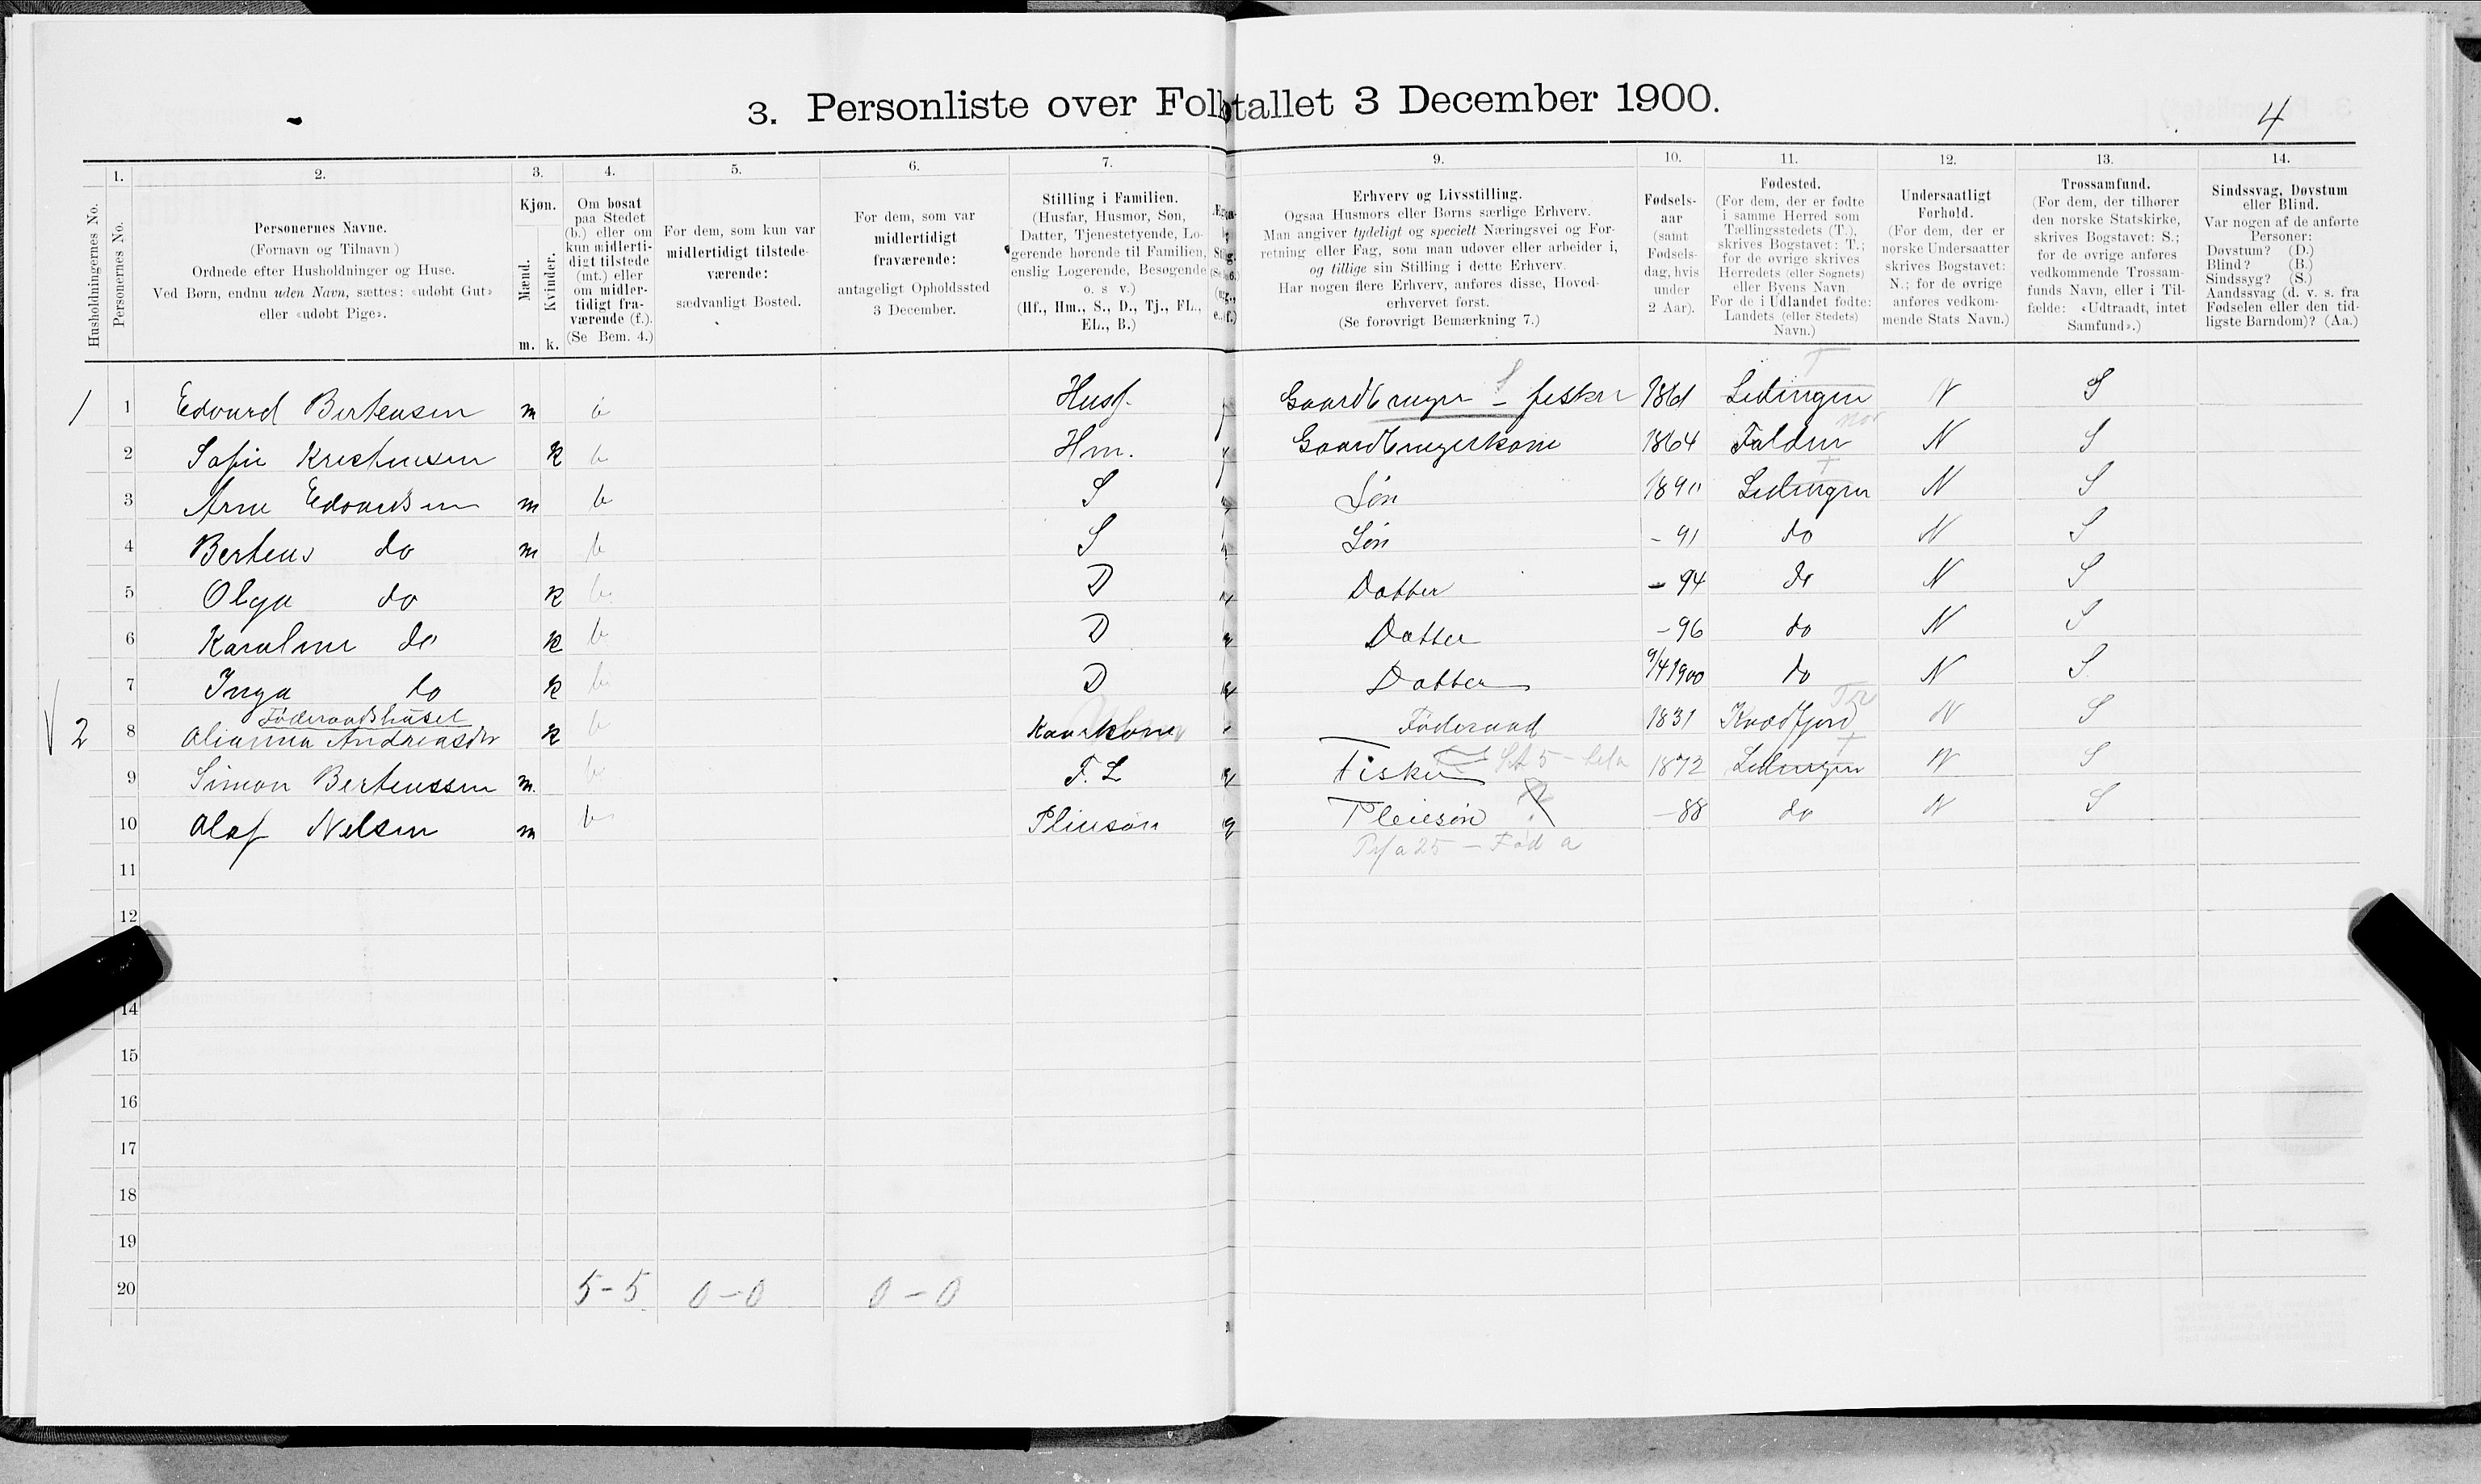 3. Personliste over Folketallet 3 December 1900.
4
1.
2.
3.
4.
5.
6.
7.
9.
10.
11.
12.
13.
14.
Husholdningernes No.
Personernes No.
Personernes Navne.
(Fornavn og Tilnavn)
Ordnede efter Husholdninger og Huse.
Ved Børn, endnu uden Navn, sættes: «udøbt Gut»
eller «udøbt Pige».
Kjøn.
Mænd.
Kvinder.
m. k.
Om bosat
paa Stedet
(b.) eller om
kun midlerti-
digt tilstede
(mt.) eller
om midler-
tidigt fra-
værende (f.).
(Se Bem. 4.)
For dem, som kun var
midlertidigt tilstede-
værende:
sædvanligt Bosted.
For dem, som var
midlertidigt
fraværende:
antageligt Opholdssted
3 December.
Stilling i Familien.
(Husfar, Husmor, Søn,
Datter, Tjenestetyende, Lo-
gerende hørende til Familien,
enslig Logerende, Besøgende
o. s. v.)
(Hf., Hm., S., D., Tj., FL.,
EL., B.)
Erhverv og Livsstilling.
Ogsaa Husmors eller Børns særlige Erhverv.
Man angiver tydeligt og specielt Næringsvei og For-
retning eller Fag, som man udøver eller arbeider i,
og tillige sin Stilling i dette Erhverv.
Har nogen flere Erhverv, anføres disse, Hoved-
erhvervet først.
(Se forøvrigt Bemærkning 7.)
Fødsels-
aar
(samt
Fødsels-
dag, hvis
under
2 Aar).
Fødested.
(For dem, der er fødte
i samme Herred som
Tællingsstedets (T.),
skrives Bogstavet: T.;
for de øvrige skrives
Herredets (eller Sognets)
eller Byens Navn.
For de i Udlandet fødte:
Landets (eller Stedets)
Navn.)
Undersaatligt
Forhold.
(For dem, der er
norske Undersaatter
skrives Bogstavet:
N.; for de øvrige
anføres vedkom-
mende Stats Navn.)
Trossamfund.
(For dem, der tilhører
den norske Statskirke,
skrives Bogstavet: S.;
for de øvrige anføres
vedkommende Trossam-
funds Navn, eller i Til-
fælde: «Udtraadt, intet
Samfund».)
Sindssvag, Døvstum
eller Blind.
Var nogen af de anførte
Personer:
Døvstum? (D.)
Blind? (B.)
Sindssyg? (S.)
Aandssvag (d. v. s. fra
Fødselen eller den tid-
ligste Barndom)? (Aa.)
1 1 Edvard Bertensen m b Husf. g Gaardbruger - fisker 1861 Lødingen T N S
2 Sofie Kristensen k b Hm. g Gaardbrugerkone 1864 Folden N S
3 Arne Edvardsen m b S Søn 1890 Lødingen T N S
4 Berteus do m b S Søn - 91 do N S
5 Olga do k b D Datter - 94 do N S
6 Karoline do k b D Datter - 96 do N S
7 Inga do k b D Datter 9/4 1900 do N S
Föderaadshuset
2 8 Alianna Andreasdtr k b Kaarkone Föderaad 1831 Kvædfjord N S
9 Simon Bertenssen m. b F. L Fisker 1872 Lødingen T N S
10 Olaf Nelsen m b Pleiesøn Pleiesøn - 88 do N S
11
12
14
15
16
17
18
19
20 5 - 5 0 - 0 0 - 0